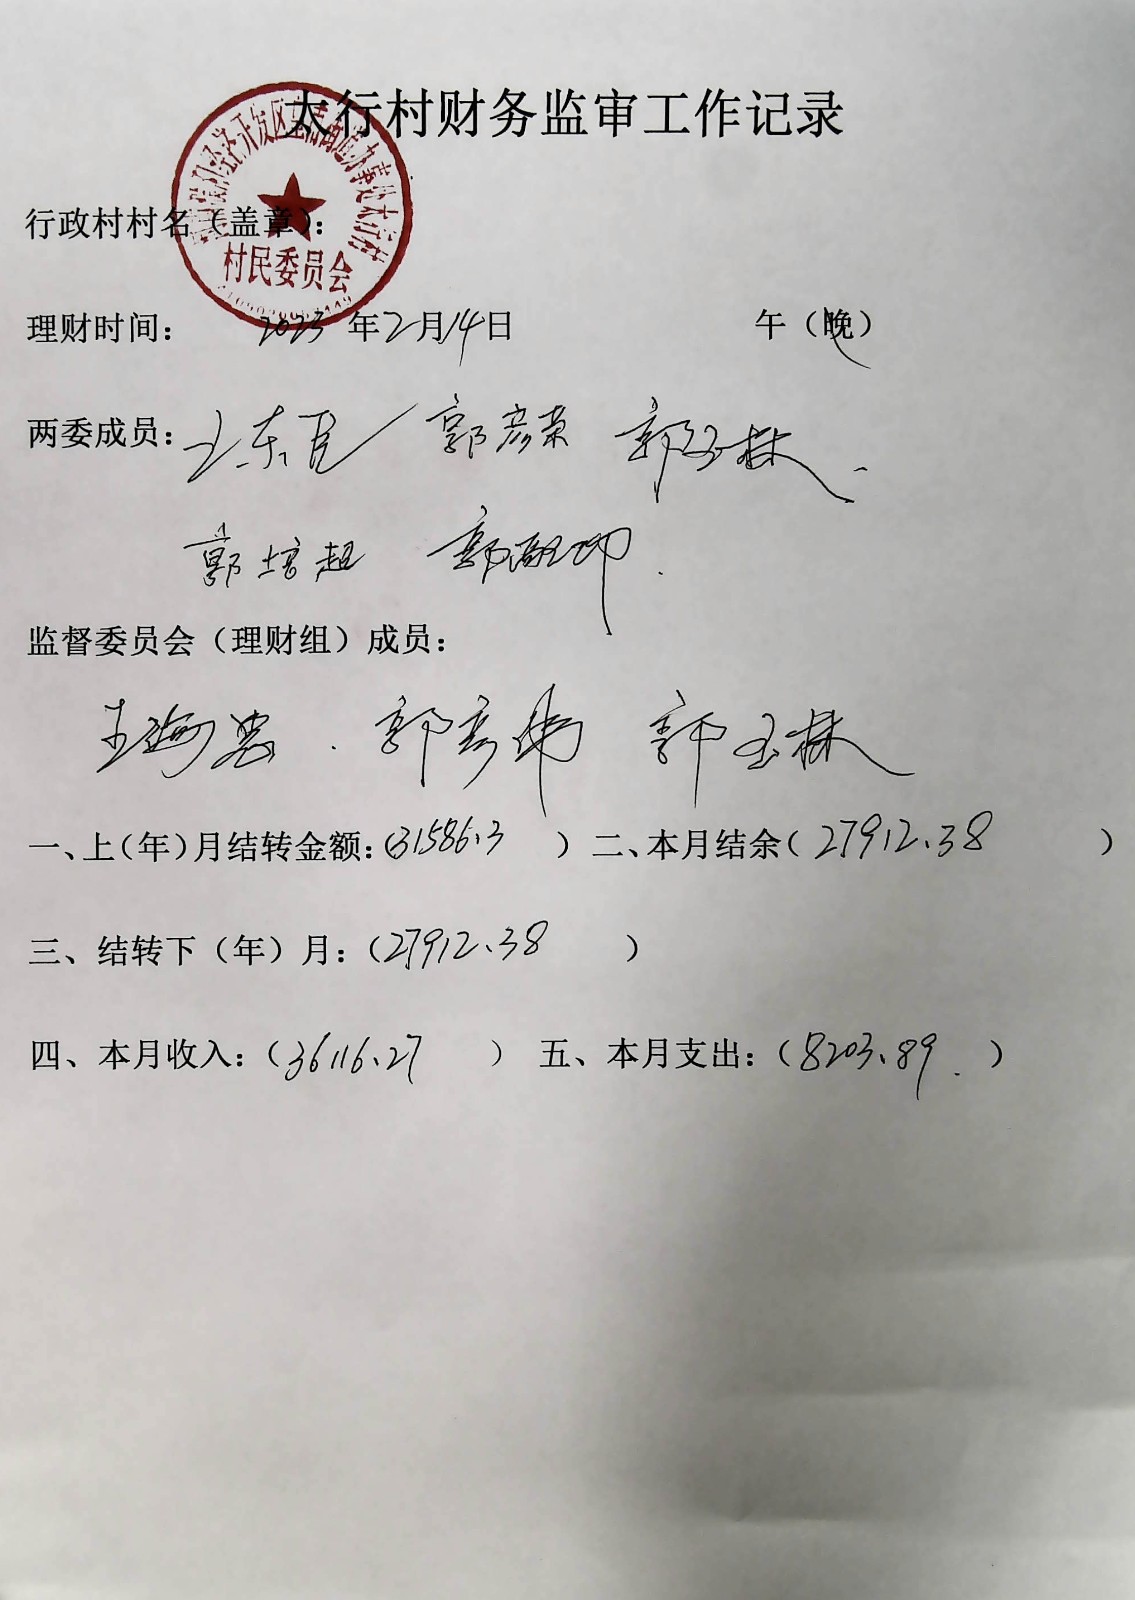 大行村财务监审工作记录
行政村村名（盖章）：
村民委员会
理财时间： 2023 年2月14日 午（晚）
两委成员： 王东 郭彦荣 郭 林
郭培超 郭
监督委员会（理财组）成员：
王海忠 郭彦 郭玉林
一、上（年）月结转金额：（31586.3 ） 二、本月结余（ 27912.38 ）
三、结转下（年）月：（27912.38 ）
四、本月收入：（36116.27 ） 五、本月支出：（8203.89 ）